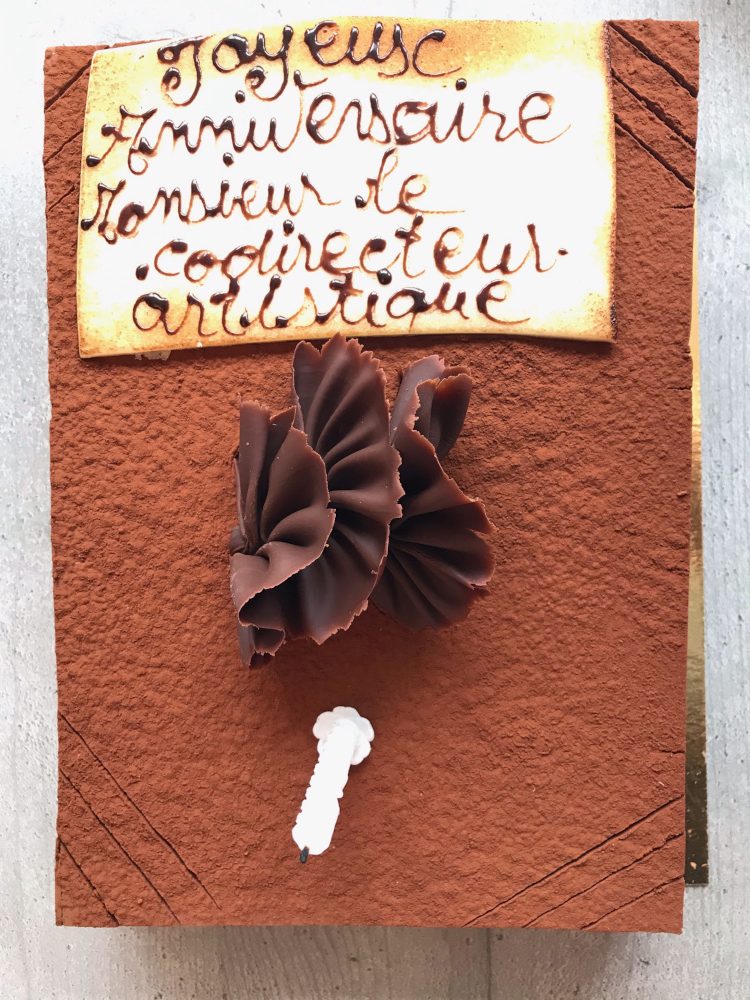 Joyeuse
Anniversaire
Monsieur le
codirecteur.
artistique